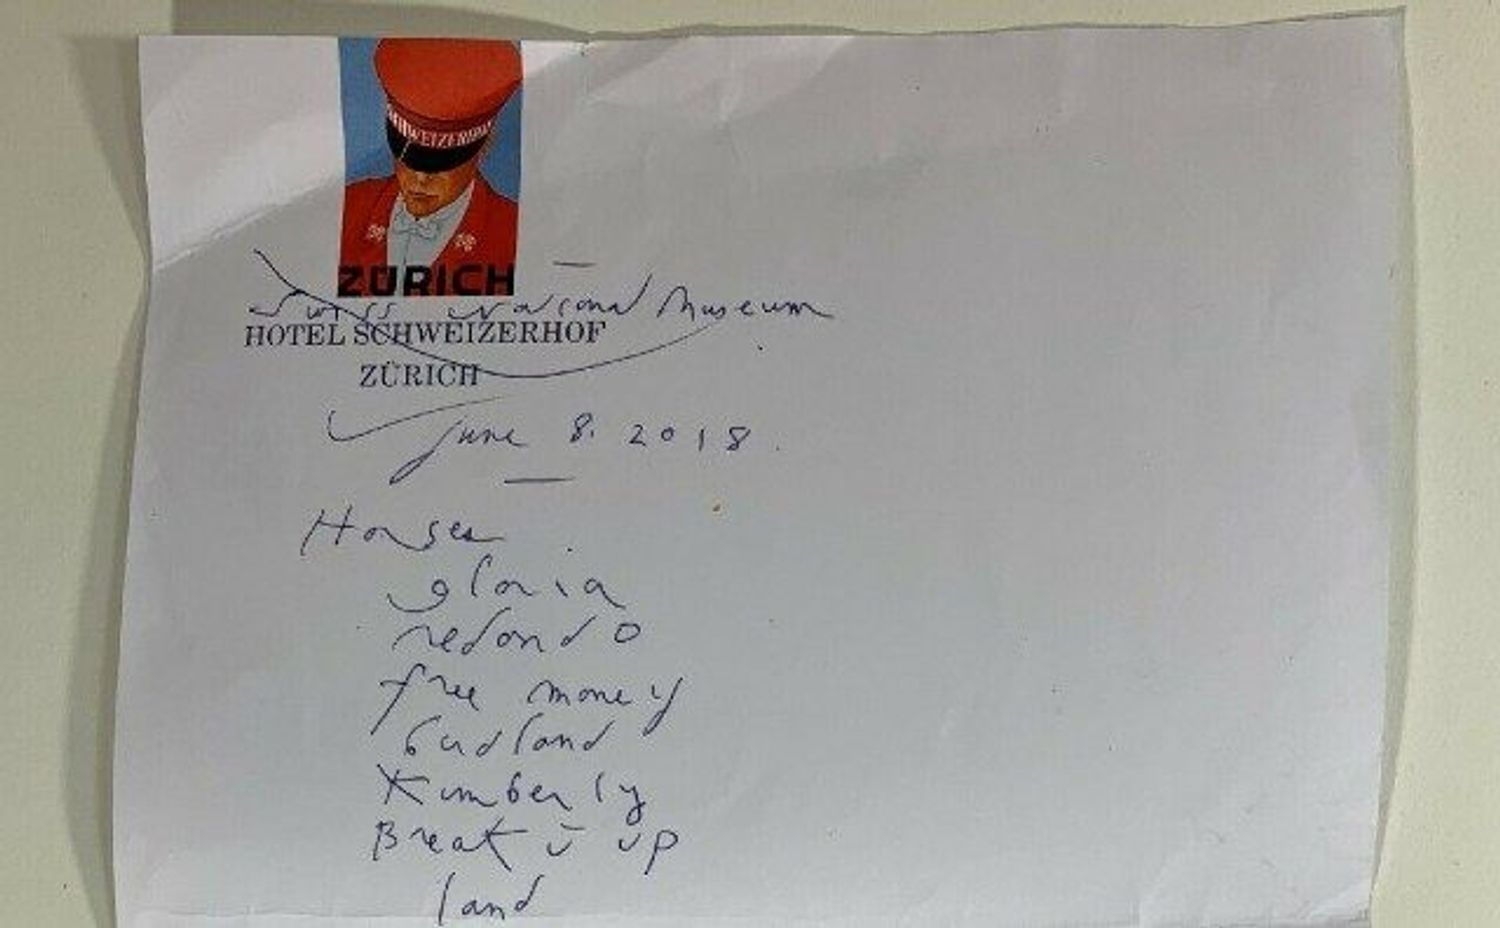 SCHWEIZERHOF
ZÜRICH
Swiss National Museum
HOTEL SCHWEIZERHOF
ZÜRICH
June 8. 2018.
Horses
gloria
redondo
free money
birdland
Kimberly
Break it up
land